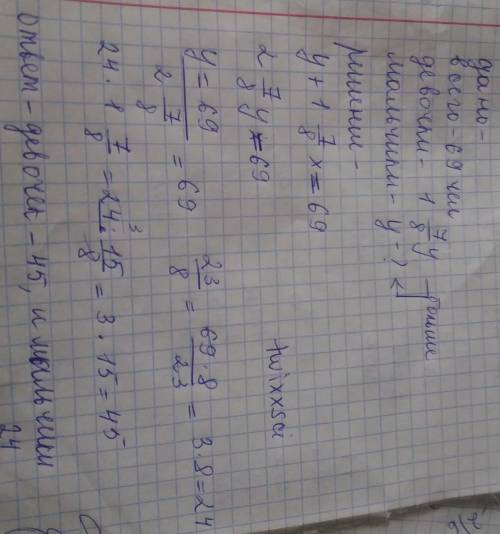 дано-
всего-69 чел
девочки- 1 7/8 y
мальчики- y-?
решение-
y+1 7/8 x=69
2 7/8 y=69
y= 69/(2 7/8) = 69 : 23/8 = 69·8/23 = 3·8=24
24·1 7/8 = 24·15/8 = 3·15=45
ответ-девочек-45, и мальчики
24
twixxsci